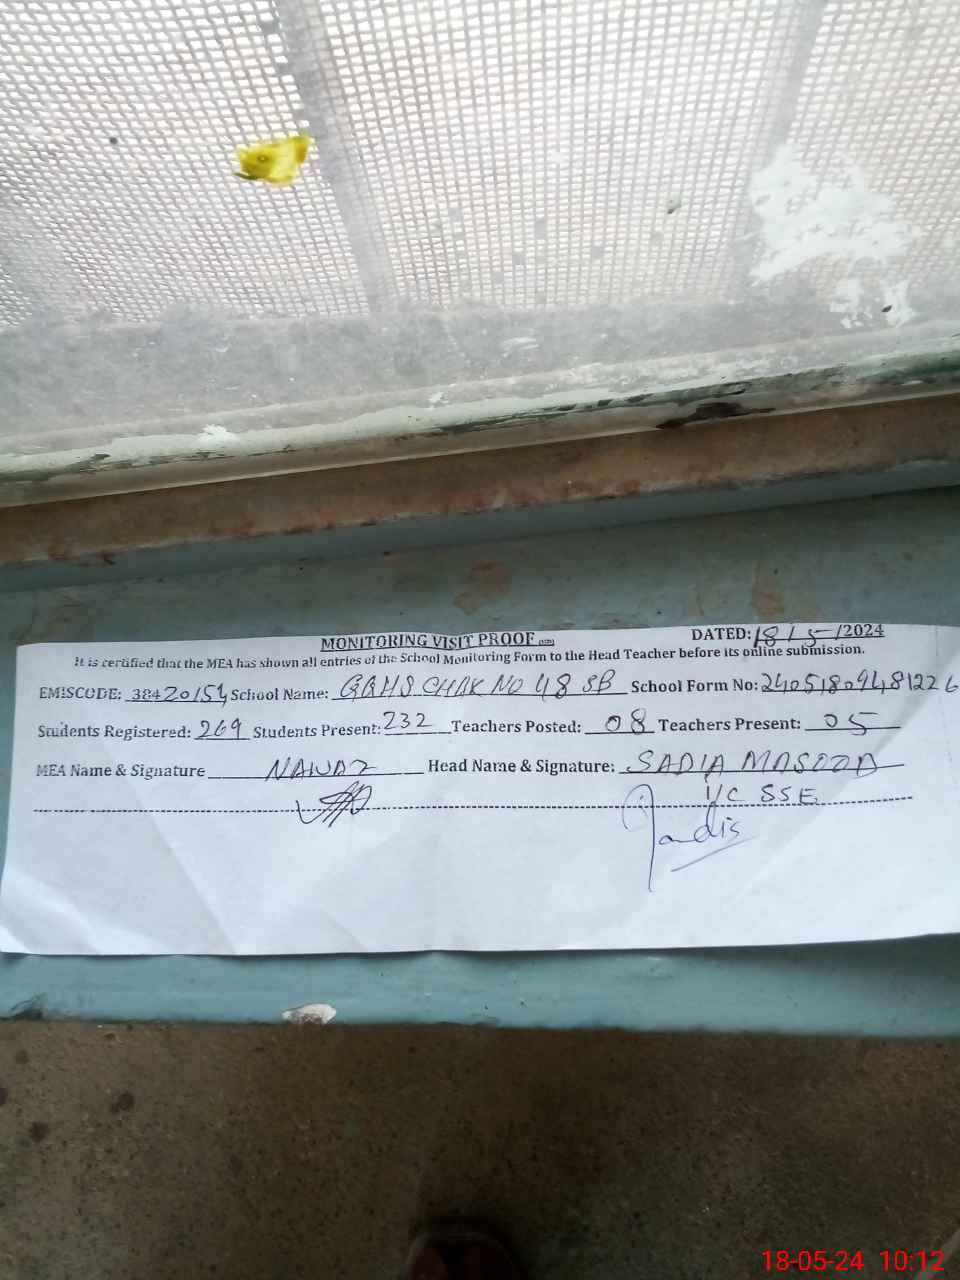 MONITORING VISIT PROOF DATED: 18/5/2024
It is certified that the MEA has shown all entries of the School Monitoring Form to the Head Teacher before its online submission.
EMISCODE: 38420154 School Name: GGHS CHAK NO 48 SB School Form No: 2405180948 1226
Students Registered: 269 Students Present: 232 Teachers Posted: 08 Teachers Present: 05
MEA Name & Signature NAWAZ Head Name & Signature: SADIA MASOOD
I/C SSE
18-05-24 10:12